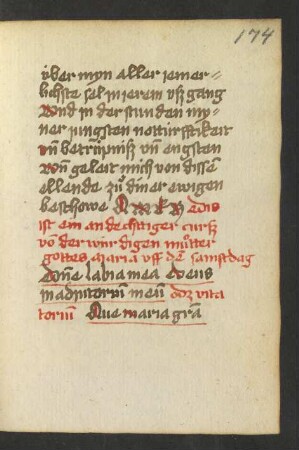 174
über myn aller iemer⸗
lichste sel in ierem vsz gang
Vnd in der stunden my⸗
ner jungsten notturfftikeit
vn̄ betrüpnisz vn̄ engsten
Vn̄ geleit mich von dissem
ellende zů diner ewigen
beschowe AMEN Dis
ist ein andechtiger cursz
vō der wirdigen můtter
gottes maria vff dē samstdag
Dōne labia mea Deus
in adiutoriū meū Dz inuita
toriū Aue maria grā